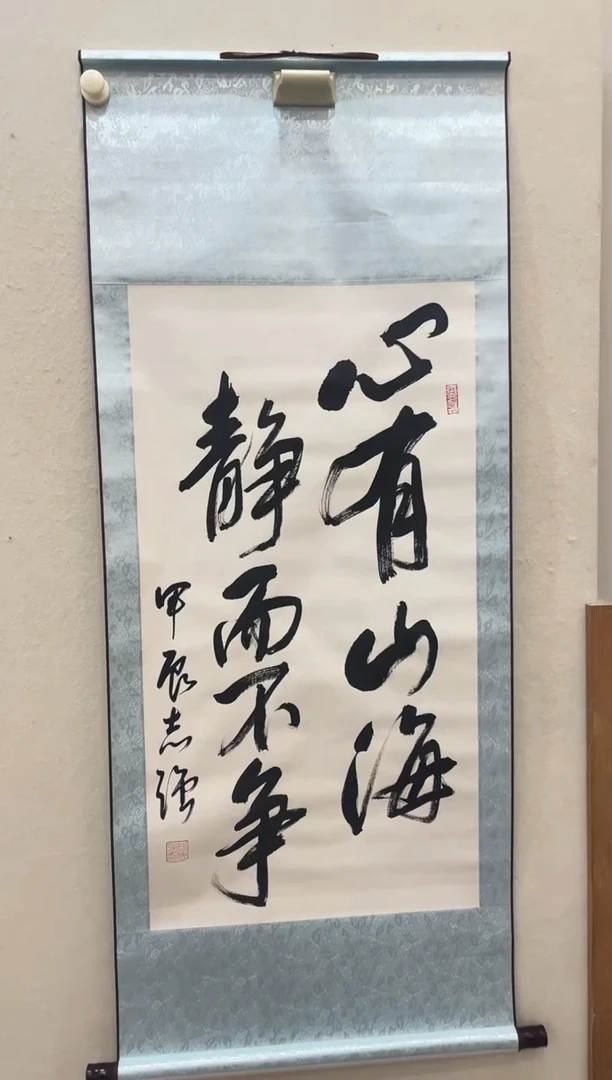 心有山海
静而不争
甲辰志强